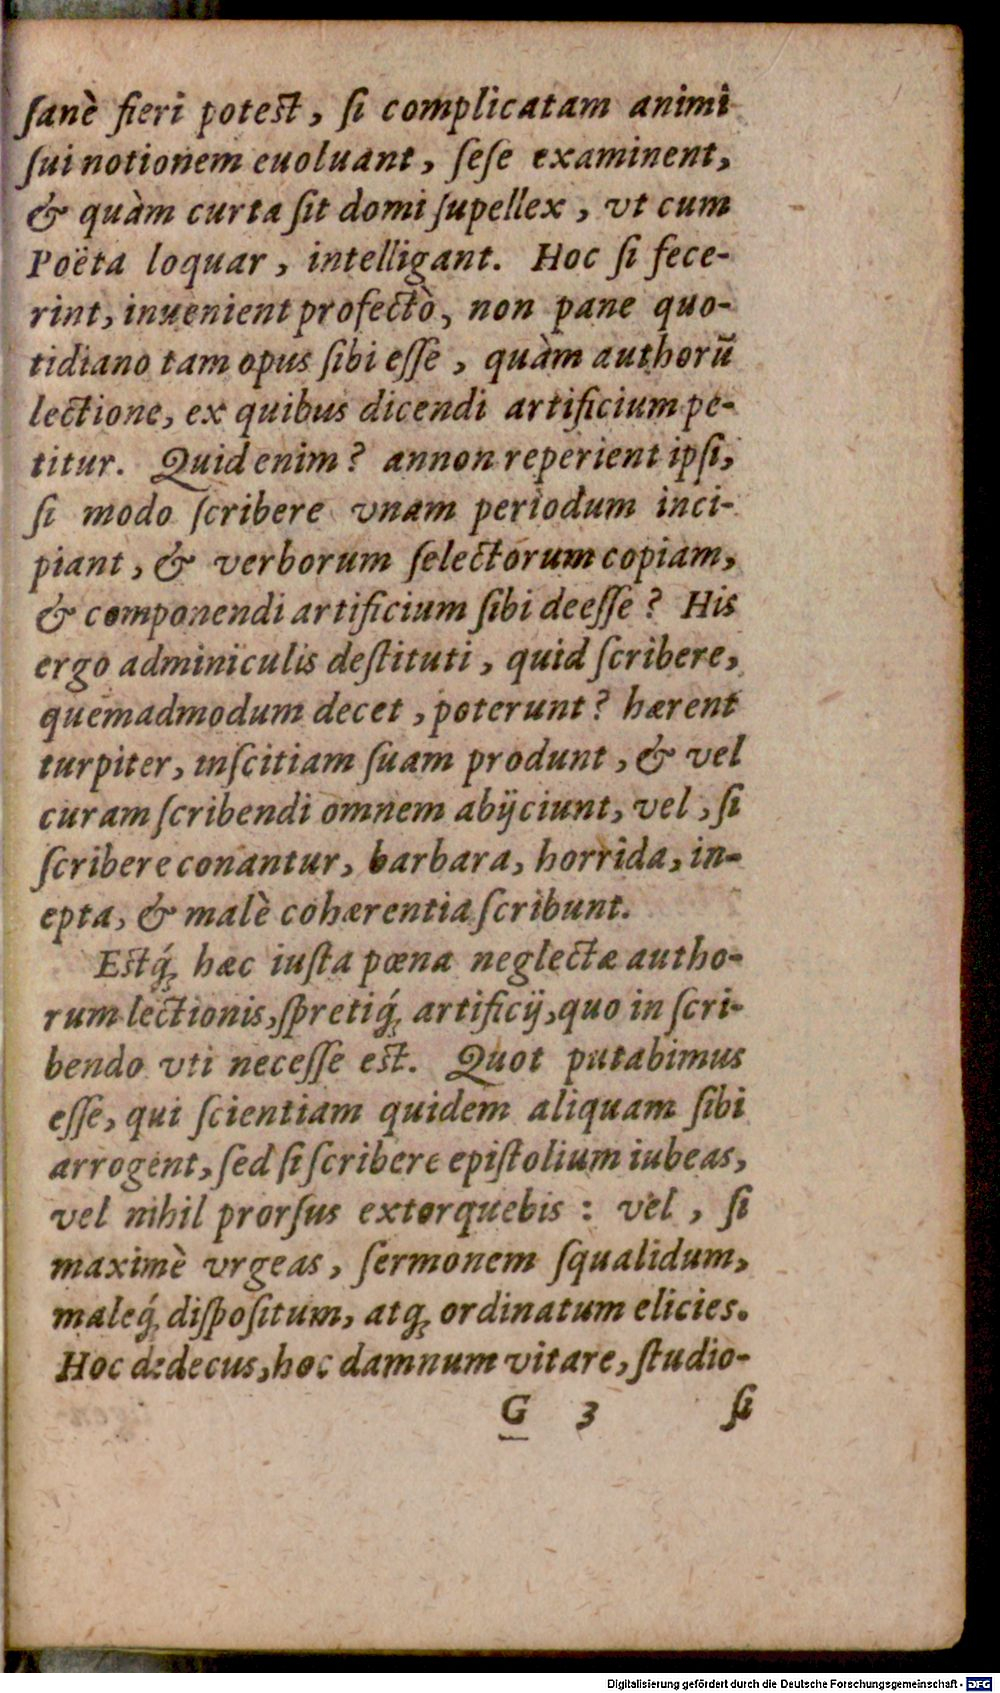 ſanè fieri poteſt, ſi complicatam animi
ſui notionem euoluant, ſeſe examinent,
& quàm curta ſit domi ſupellex, vt cum
Poëta loquar, intelligant. Hoc ſi fece-
rint, inuenient profectò, non pane quo-
tidiano tam opus ſibi eſſe, quàm authorũ
lectione, ex quibus dicendi artificium pe-
titur. Quid enim? annon reperient ipſi,
ſi modo ſcribere vnam periodum inci-
piant, & verborum ſelectorum copiam,
& componendi artificium ſibi deeſſe? His
ergo adminiculis deſtituti, quid ſcribere,
quemadmodum decet, poterunt? hærent
turpiter, inſcitiam ſuam produnt, & vel
curam ſcribendi omnem abijciunt, vel, ſi
ſcribere conantur, barbara, horrida, in-
epta, & malè cohærentia ſcribunt.
Eſtq́ꝫ hæc iuſta pœna neglectæ autho-
rum lectionis, ſpretiq́ꝫ artificij, quo in ſcri-
bendo vti neceſſe eſt. Quot putabimus
eſſe, qui ſcientiam quidem aliquam ſibi
arrogent, ſed ſi ſcribere epiſtolium iubeas,
vel nihil prorſus extorquebis: vel, ſi
maximè vrgeas, ſermonem ſqualidum,
maleq́ꝫ diſpoſitum, atqꝫ ordinatum elicies.
Hoc dedecus, hoc damnum vitare, ſtudio-
G 3 ſi
Digitalisierung gefördert durch die Deutsche Forschungsgemeinschaft - DFG